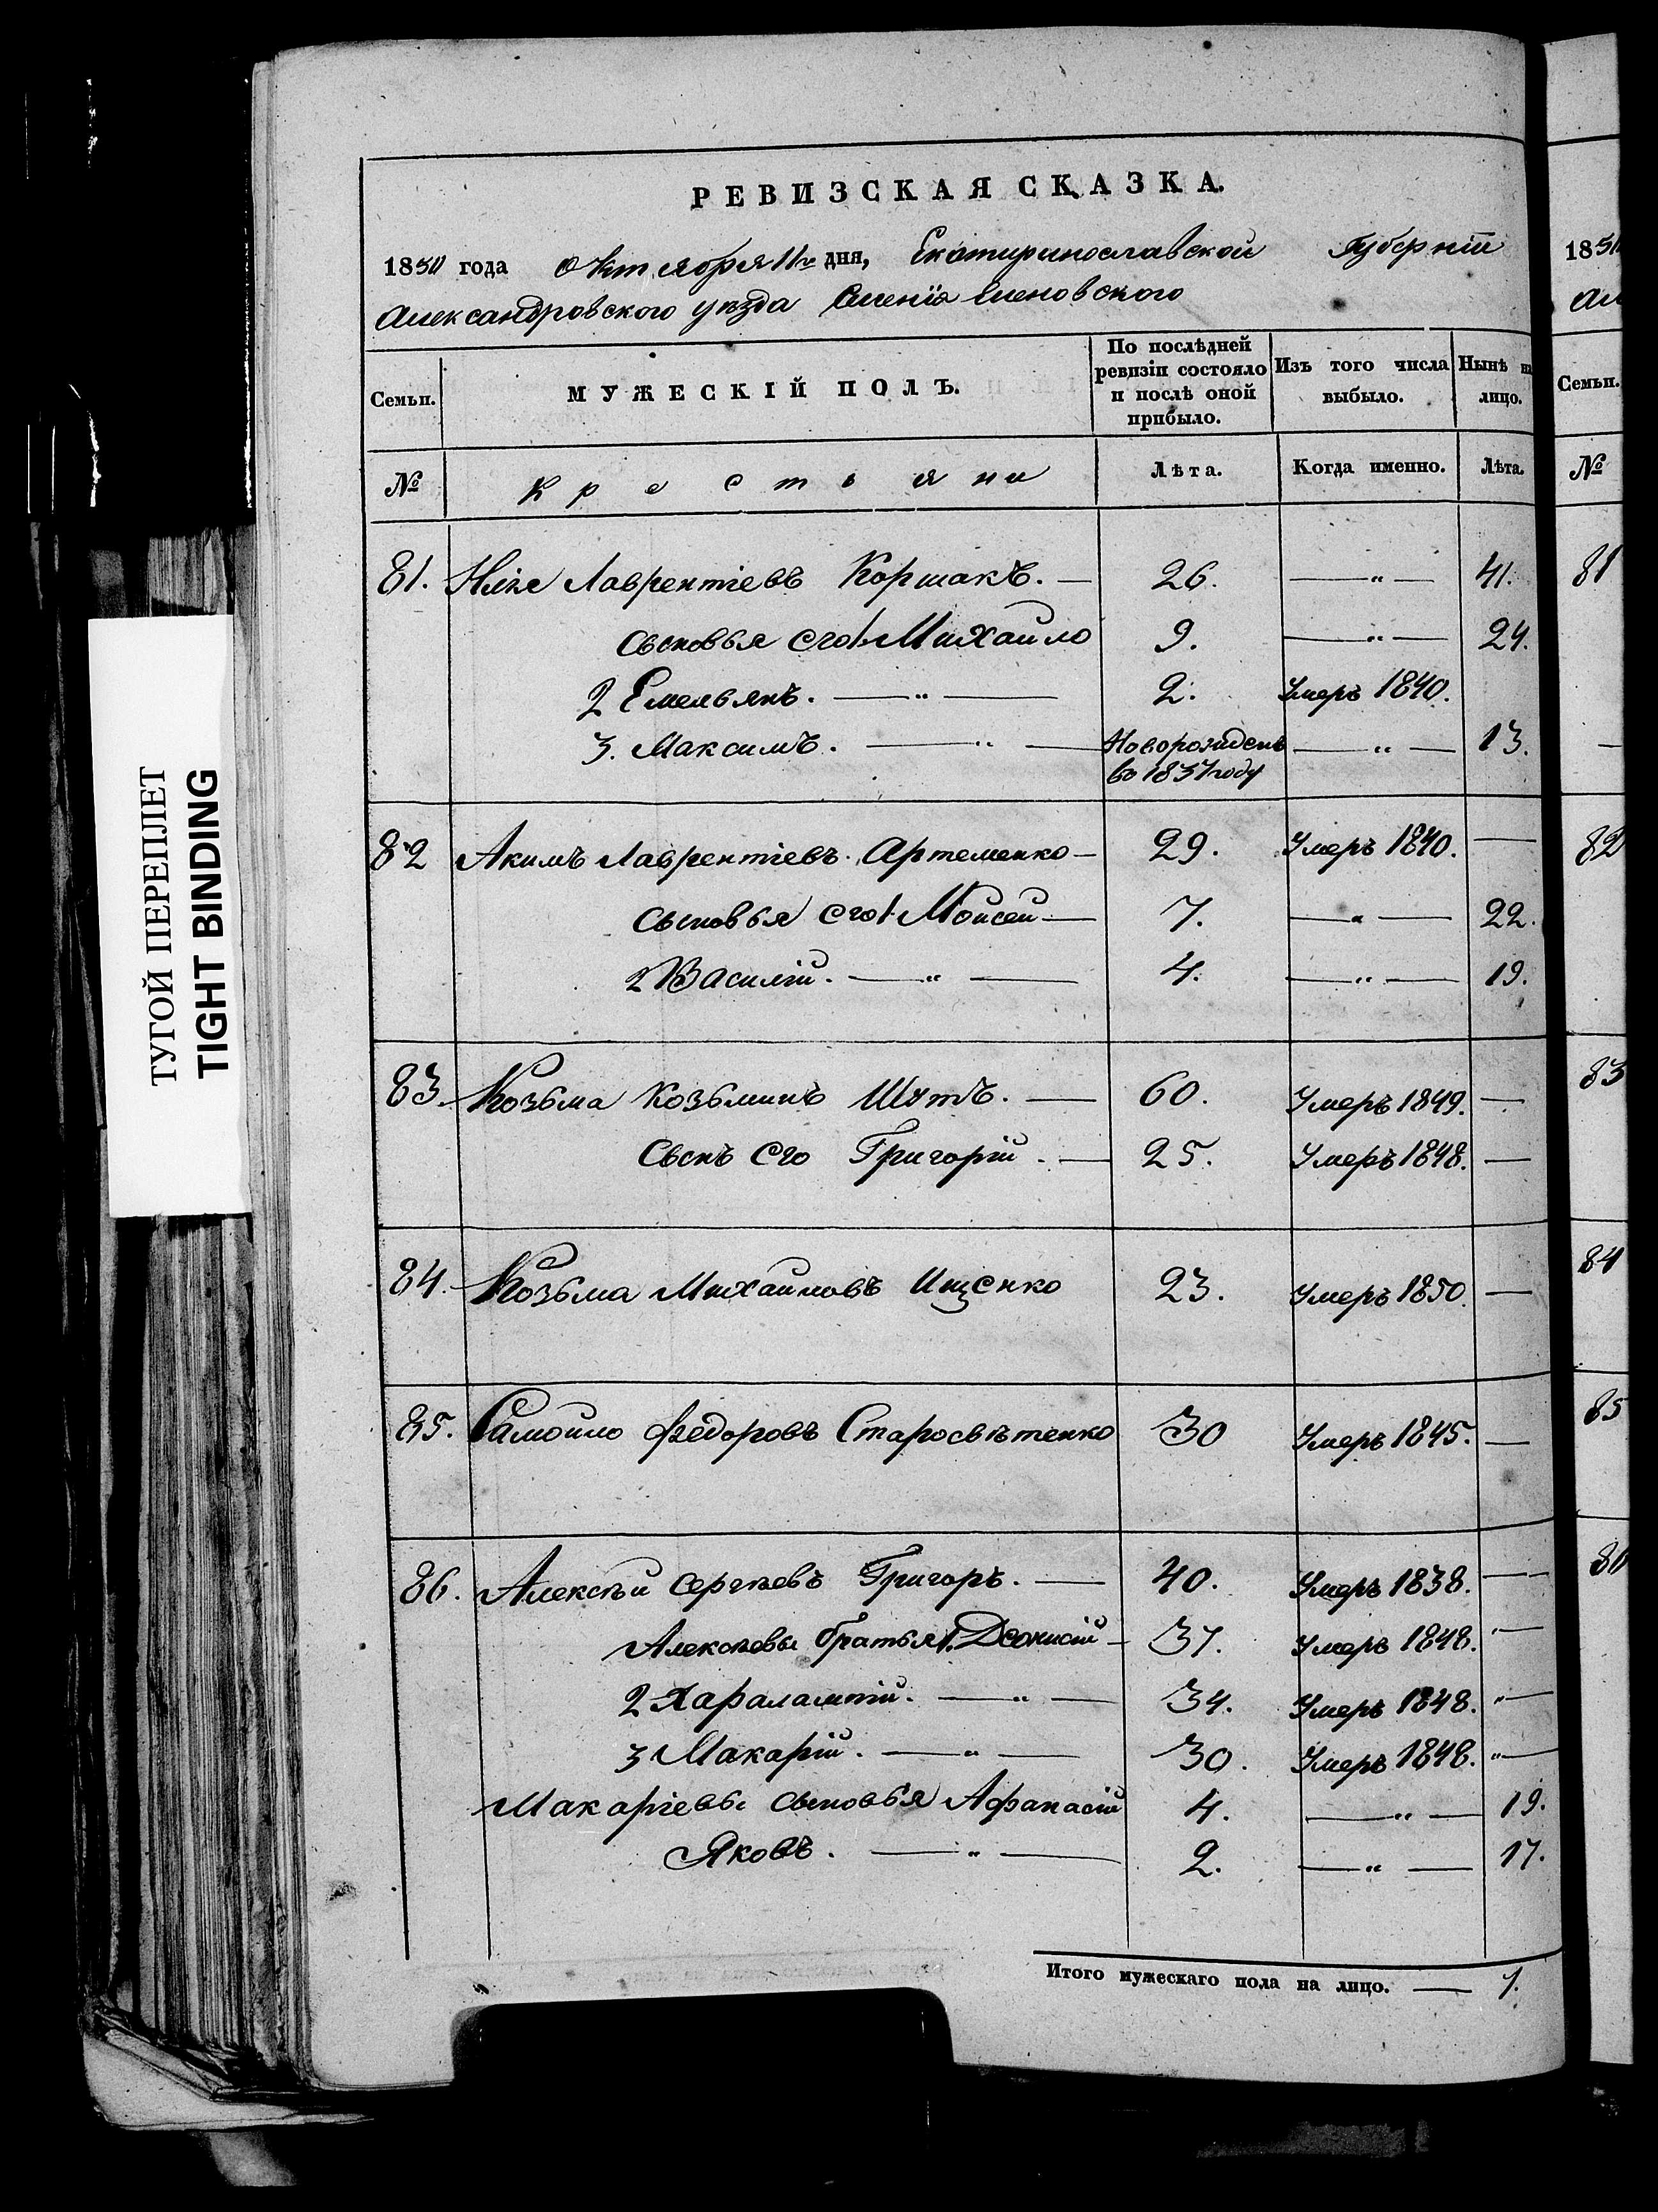 РЕВИЗСКАЯ СКАЗКА.
1850 года октября 11го дня, Екатеринославской Губерніи
Александровского уезда Имения Еленовского
Семьи. МУЖЕСКІЙ ПОЛЪ. По послѣдней ревизіи состояло и послѣ оной прибыло. Изъ того числа выбыло. Нынѣ на лицо.
№ Крестьяни Лѣта. Когда именно. Лѣта.
81. Лаврентіевъ Коршакъ. — 26. — „ — 41.
Сыновья его 1. Михаило 9. — „ — 24.
2 Емельянъ. — „ — 2. Умеръ 1840.
3. Максимъ. — „ — Новорожденъ — „ — 13.
въ 1837 году
82 Акимъ Лаврентіевъ Артеменко — 29. Умеръ 1840. —
Сыновья его 1. Моисей — 7. — „ — 22.
2 Василій. — „ — 4. — „ — 19.
83. Козьма Козьминъ Шутъ. — 60. Умеръ 1849. —
Сынъ его Григорій. — 25. Умеръ 1848. —
84. Козьма Михаиловъ Ищенко 23. Умеръ 1850. —
85. Самоило Федоровъ Старосвѣтенко 30 Умеръ 1845. —
86. Алексѣй Сергѣевъ Григоръ. — 40. Умеръ 1838. —
Алексѣевы братья 1. Деонисій — 37. Умеръ 1848. „ —
2 Харалампій. — „ — 34. Умеръ 1848. „ —
3 Макарій. — „ — 30. Умеръ 1848. „ —
Макаріевы сыновья Афанасій 4. — „ — 19.
Яковъ. — „ — 2. — „ — 17.
Итого мужескаго пола на лицо. — 7.
ТУГОЙ ПЕРЕПЛЕТ
TIGHT BINDING
Семьи.
№
81
82
83
84
85
86